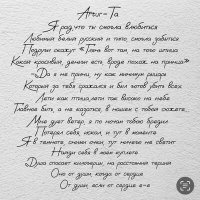 Artur-Ta
Я рад что ты смогла влюбиться
Любимый белый русский и тихо, смогла убиться
Подруги скажут «Твой вот там, на того шпица
Какой красивый, деньги есть, вроде похож на принца»
"Да я не принц, ну как минимум рыцарь
Который за тебя сражался и был готов убить всех
Лети как птица, лети так высоко на небо
Главное быть, а не казаться, в нашем с тобою сюжете
Мне дует ветер, а по ночам тобою бредил
Потерял себя, искал, и тут в моменте
Я в темноте, сними очки, тут ничего не светит
Напишу тебя в моём куплете
Душа спасает километры, на расстоянии терпим
Она от души, когда от сердца
От души, если от сердца а-а